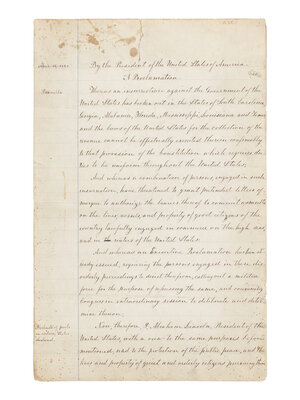 By the President of the United States of America.
A Proclamation
Whereas an insurrection against the Government of the
United States has broken out in the States of South Carolina,
Georgia, Alabama, Florida, Mississippi, Louisiana and Texas
and the laws of the United States for the collection of the
revenue cannot be effectually executed therein conformably
to that provision of the Constitution which requires du-
ties to be uniform throughout the United States;
And whereas a combination of persons, engaged in such
insurrection, have threatened to grant pretended letters of
marque to authorize the bearers thereof to commit assaults
on the lives, vessels, and property of good citizens of the
country lawfully engaged in commerce on the high seas,
and in waters of the United States:
And whereas an Executive Proclamation has been al-
ready issued, requiring the persons engaged in these dis-
orderly proceedings to desist therefrom, calling out a militia
force for the purpose of repressing the same, and convening
Congress in extraordinary session to deliberate and deter-
mine thereon;
Now therefore I, Abraham Lincoln, President of the
United States, with a view to the same purposes before
mentioned, and to the protection of the public peace, and the
lives and property of quiet and orderly citizens pursuing their
Blockade of ports
declared.